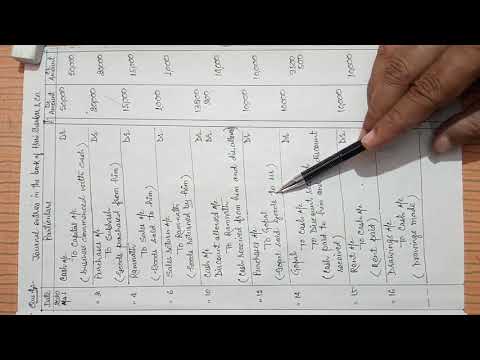 Journal entries in the book of Hari Shankar & Co.
Date Particulars Dr Amount Cr Amount
Cash A/c Dr 50,000
To Capital A/c 50,000
(business commenced with cash)
" 2 Purchases A/c Dr 20,000
To Subhash 20,000
(Goods purchased from him)
" 4 Ramnath Dr 15,000
To Sales A/c 15,000
(Goods sold to him)
" 6 Sales return A/c Dr 1000
To Ramnath 1000
(Goods returned by him)
" 10 Cash A/c Dr
Discount allowed A/c Dr
To Ramnath
(Cash received from him and discount allowed)
" 12 Purchases A/c Dr 10,000
To Gopal 10,000
(Gopal sold goods to us)
" 14 Gopal Dr 10000
To Cash A/c
To Discount 500
(Cash paid to him and discount
received)
" 15 Rent A/c Dr 10000
To Cash A/c 10000
(Rent paid)
" 16 Drawings A/c
To Cash A/c
(Drawings made)